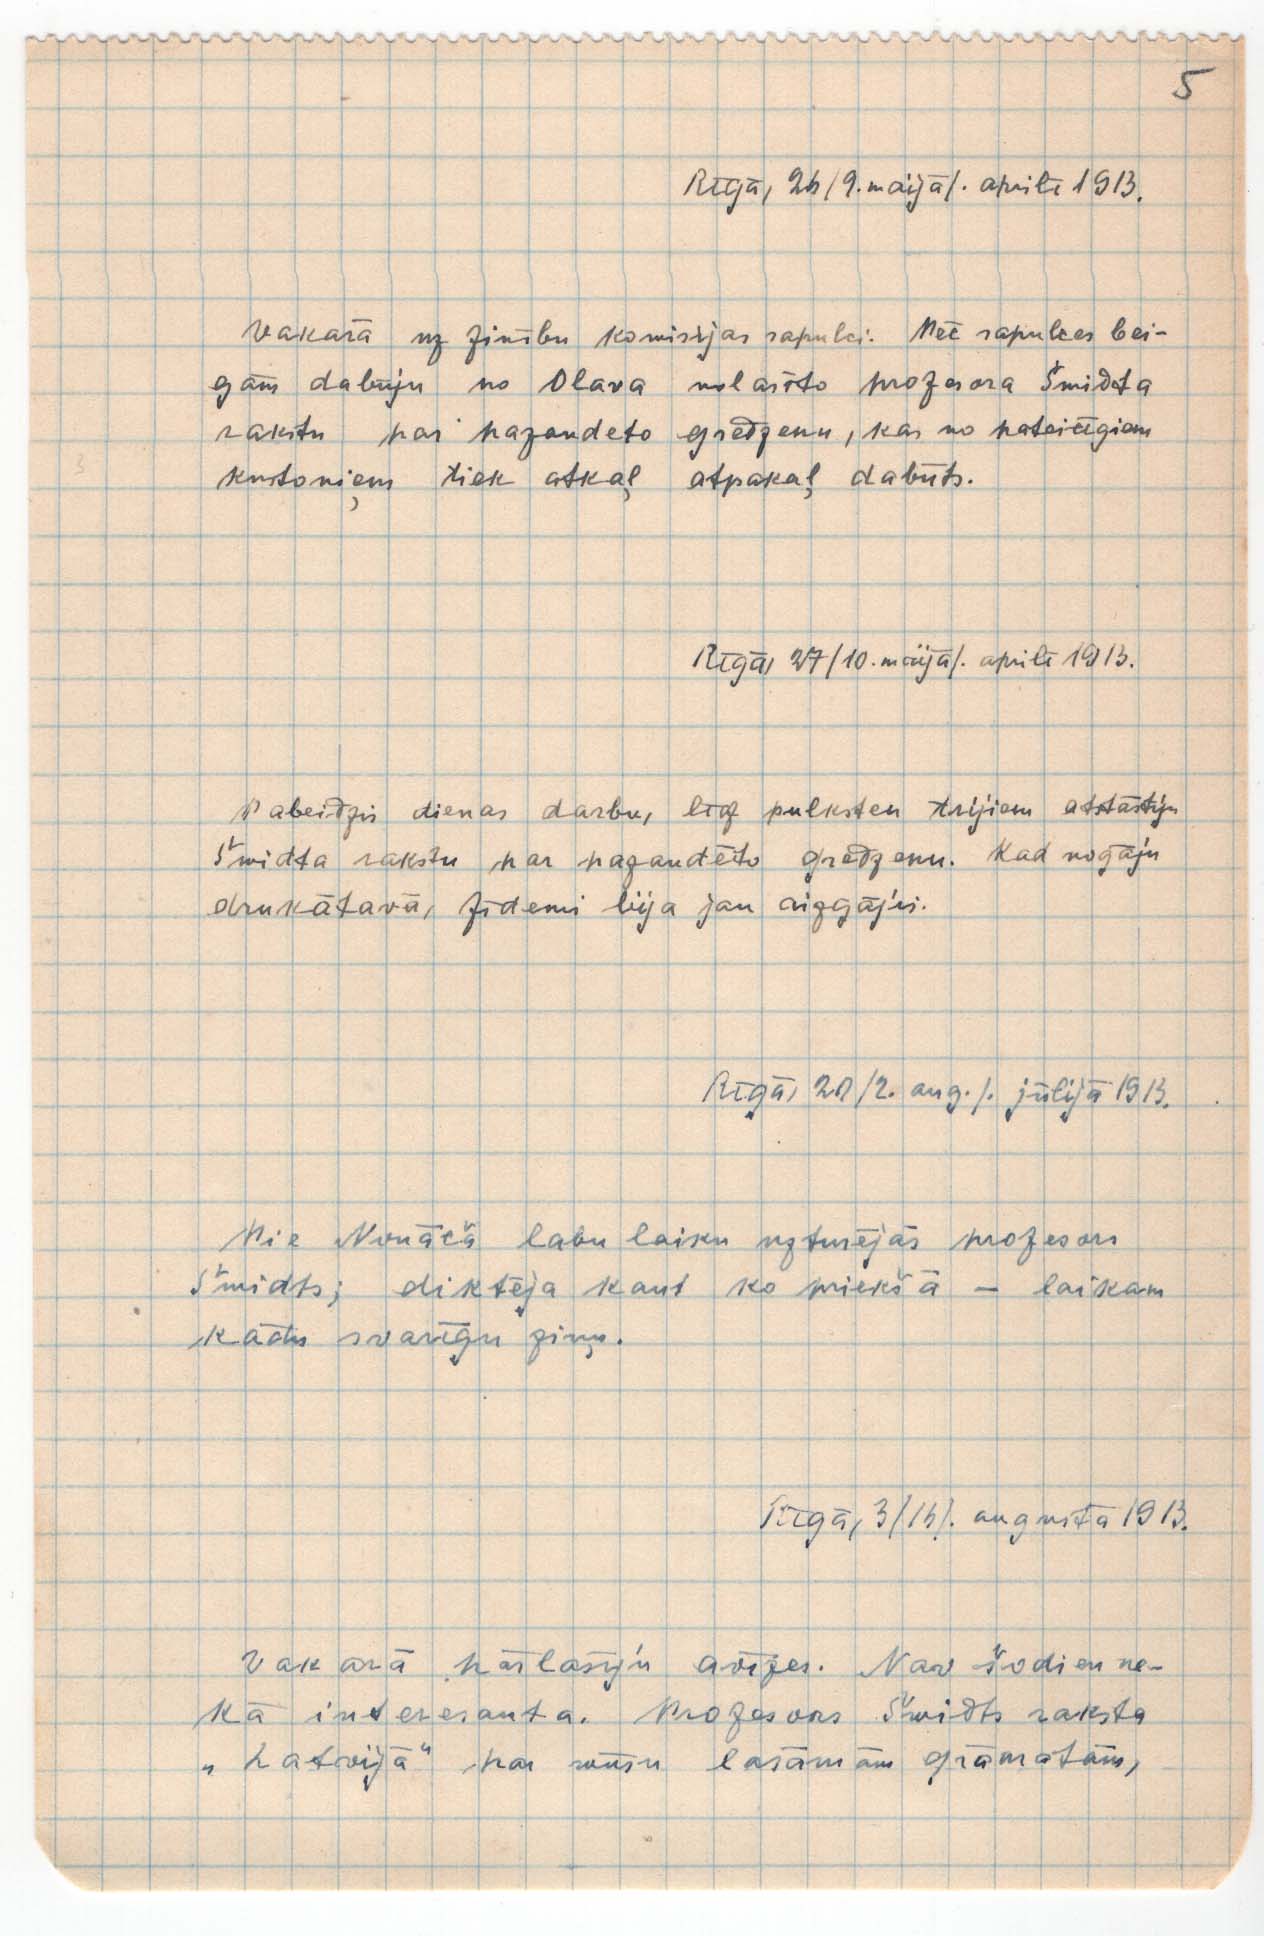 5
Rīgā, 26/9. maijā/. aprilī 1913.
Vakarā uz Zinību komisijas sapulci. Pēc sapulces bei-
gām dabūju no Olava nolasīto profesora Šmidta
rakstu par pazaudeto gredzenu, kas no pateicīgiem
kustoņiem tiek atkaļ atpakaļ dabūts.
Rīgā, 27/10. maijā/. aprilī 1913.
Pabeidzis dienas darbu, līdz pulksten trijiem atstāstiju
Šmidta rakstu par pazaudēto gredzenu. Kad nogāju
drukātavā, zīdemi bija jau aizgājuši.
Rīgā, 20/2. aug./. jūlijā 1913.
Pie Nonāča labu laiku uzturējās profesors
Šmidts; diktēja kaut ko priekšā — laikam
kādu svarīgu ziņu.
Rīgā, 3/16/. augustā 1913.
Vakarā pārlasīju avīzes. Nav šodien ne-
kā interesanta. Profesors Šmidts raksta
„Latvijā“ par mūsu lasāmām grāmatām,